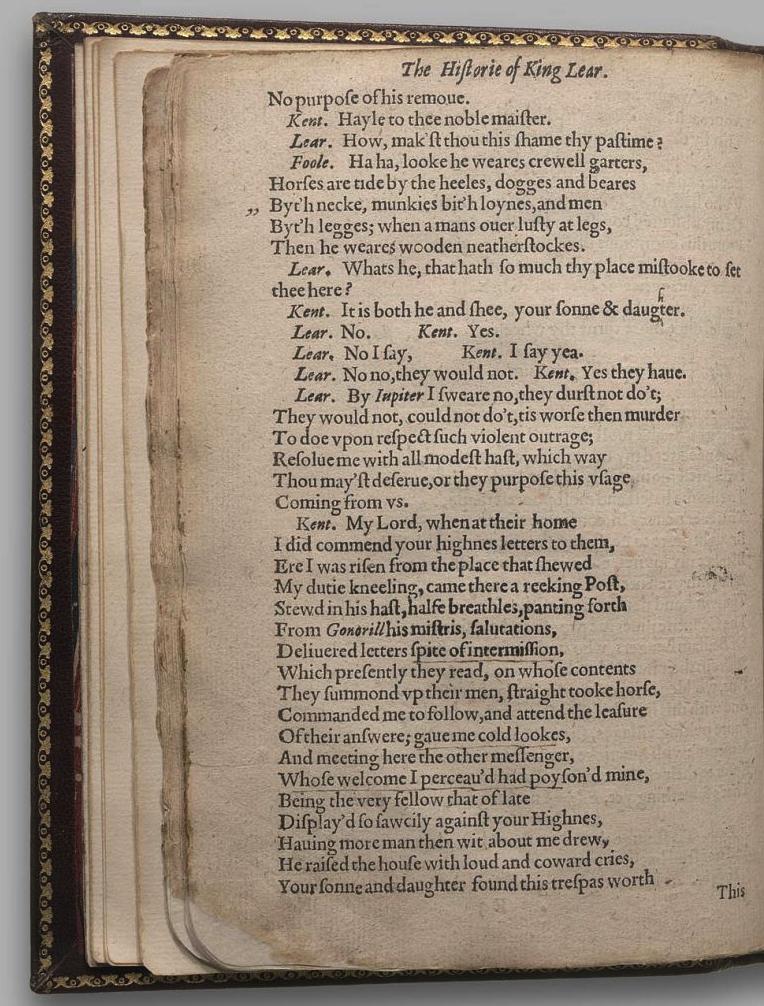 The Hiſtorie of King Lear.
No purpoſe of his remoue.
Kent. Hayle to thee noble maiſter.
Lear. How, mak'ſt thou this ſhame thy paſtime?
Foole. Ha ha, looke he weares crewell garters,
Horſes are tide by the heeles, dogges and beares
,, Byt'h necke, munkies bit'h loynes,and men
Byt'h legges; when a mans ouer luſty at legs,
Then he weares wooden neatherſtockes.
Lear. Whats he, that hath ſo much thy place miſtooke to ſet
thee here?
Kent. It is both he and ſhee, your ſonne & daugter.
h
Lear. No. Kent. Yes.
Lear. No I ſay, Kent. I ſay yea.
Lear. No no,they would not. Kent. Yes they haue.
Lear. By Iupiter I ſweare no,they durſt not do't;
They would not, could not do't,tis worſe then murder
To doe vpon reſpect ſuch violent outrage;
Reſolue me with all modeſt haſt, which way
Thou may'ſt deſerue,or they purpoſe this vſage,
Coming from vs.
Kent. My Lord, when at their home
I did commend your highnes letters to them,
Ere I was riſen from the place that ſhewed
My dutie kneeling, came there a reeking Poſt,
Stewd in his haſt,halfe breathles,panting forth
From Gonorill his miſtris, ſalutations,
Deliuered letters ſpite of intermiſſion,
Which preſently they read, on whoſe contents
They ſummond vp their men, ſtraight tooke horſe,
Commanded me to follow,and attend the leaſure
Of their anſwere; gaue me cold lookes,
And meeting here the other meſſenger,
Whoſe welcome I perceau'd had poyſon'd mine,
Being the very fellow that of late
Diſplay'd ſo ſawcily againſt your Highnes,
Hauing more man then wit about me drew,
He raiſed the houſe with loud and coward cries,
Your ſonne and daughter found this treſpas worth
This